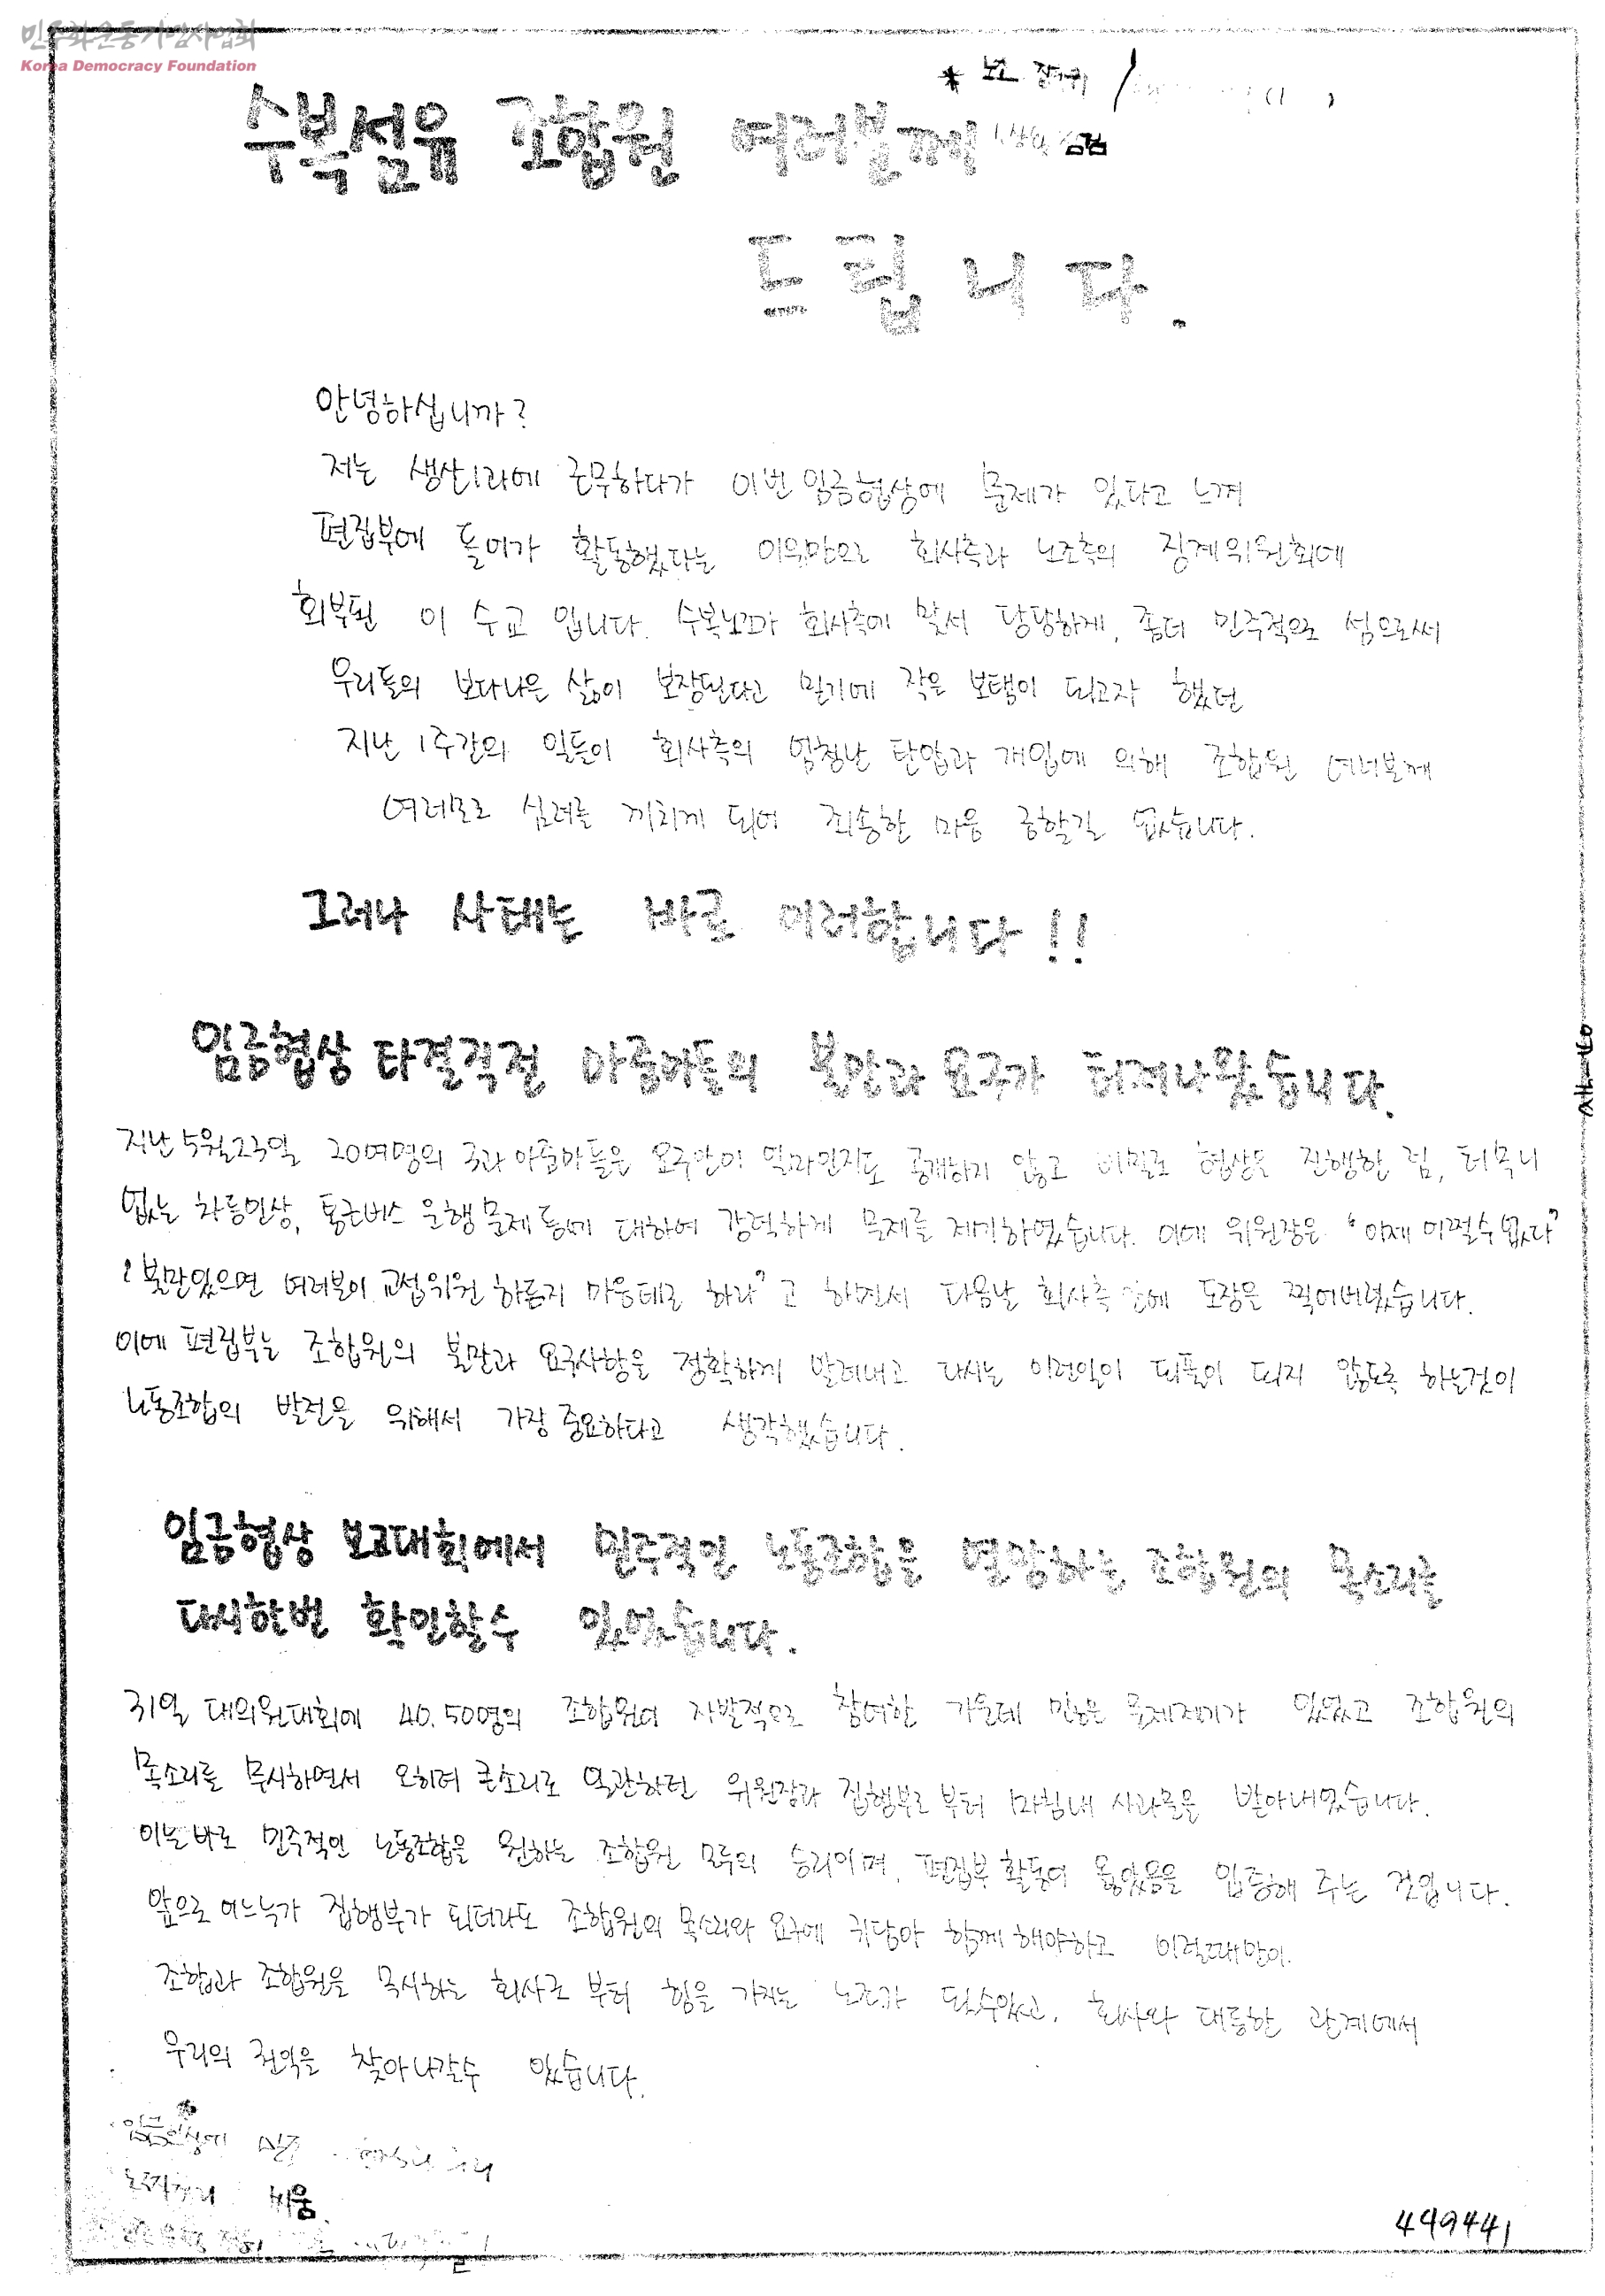 민주화운동기념사업회
Korea Democracy Foundation
수복섬유 조합원 여러분께
드립니다.
안녕하십니까?
저는 생산1과에 근무하다가 이번 임금협상에 문제가 있다고 느껴
편집부에 들어가 활동했다는 이유만으로 회사측과 노조측의 징계위원회에
회부된 이 수교 입니다. 수복노조가 회사측에 맞서 당당하게, 좀더 민주적으로 섬으로써
우리들의 보다나은 삶이 보장된다고 믿기에 작은 보탬이 되고자 했던
지난 1주간의 일들이 회사측의 엄청난 탄압과 개입에 의해 조합원 여러분께
여러모로 심려를 끼치게 되어 죄송한 마음 금할길 없습니다.
그러나 사태는 바로 이러합니다!!
임금협상 타결직전 아줌마들의 불만과 요구가 터져나왔습니다.
지난 5월23일 20여명의 3과 아줌마들은 요구안이 얼마인지도 공개하지 않고 비밀로 협상을 진행한 점, 터무니
없는 차등인상, 통근버스 운행 문제 등에 대하여 강력하게 문제를 제기하였습니다. 이에 위원장은 "이제 어쩔수 없다"
"불만있으면 여러분이 교섭위원 하든지 마음데로 하라"고 하면서 다음날 회사측 안에 도장을 찍어버렸습니다.
이에 편집부는 조합원의 불만과 요구사항을 정확하게 밝혀내고 다시는 이런일이 되풀이 되지 않도록 하는것이
노동조합의 발전을 위해서 가장 중요하다고 생각했습니다.
임금협상 보고대회에서 민주적인 노동조합을 열망하는 조합원의 목소리를
다시한번 확인할수 있었습니다.
31일 대의원대회에 40.50명의 조합원이 자발적으로 참여한 가운데 많은 문제제기가 있었고 조합원의
목소리를 무시하면서 오히려 큰소리로 일관하던 위원장과 집행부로 부터 마침내 사과문을 받아내었습니다.
이는 바로 민주적인 노동조합을 원하는 조합원 모두의 승리이며, 편집부 활동이 옳았음을 입증해 주는 것입니다.
앞으로 어느누가 집행부가 되더라도 조합원의 목소리와 요구에 귀담아 함께 해야하고 이럴때만이
조합과 조합원을 무시하는 회사로 부터 힘을 가지는 노조가 될수있고, 회사와 대등한 관계에서
우리의 권익을 찾아나갈수 있습니다.
449441